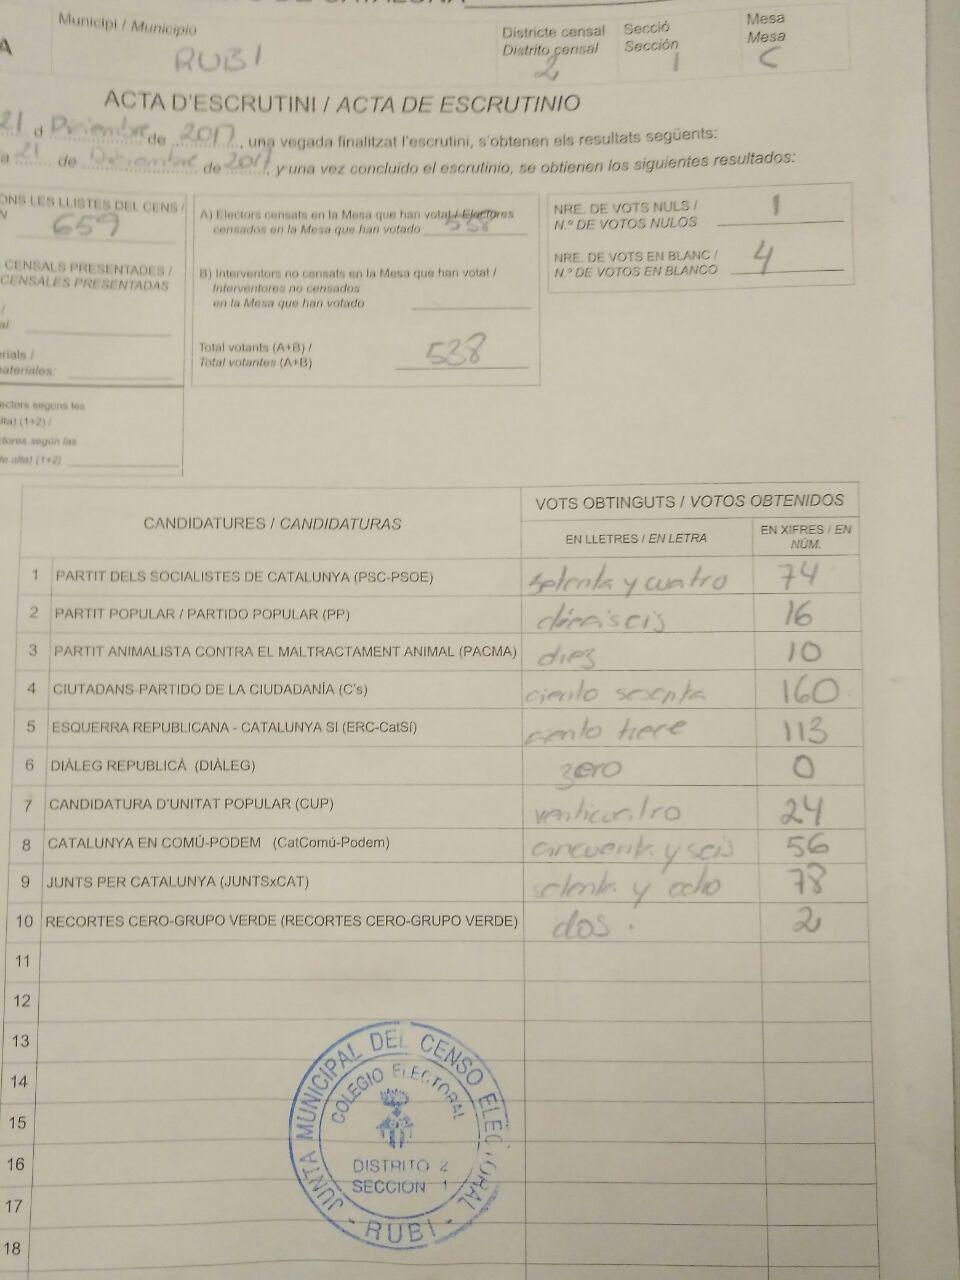 Municipi / Municipio
RUBI
Districte censal
Distrito censal
2
Secció
Sección
1
Mesa
Mesa
C
A
ACTA D'ESCRUTINI / ACTA DE ESCRUTINIO
21 d Diciembre de 2017, una vegada finalitzat l'escrutini, s'obtenen els resultats següents:
a 21 de Diciembre de 2017, y una vez concluido el escrutinio, se obtienen los siguientes resultados:
ONS LES LLISTES DEL CENS /
N
659
CENSALS PRESENTADES /
CENSALES PRESENTADAS
/
al:
erials /
materiales:
ectors segons les
lta) (1+2) /
ctores según las
de alta) (1+2)
A) Electors censats en la Mesa que han votat / Electores
censados en la Mesa que han votado 538
B) Interventors no censats en la Mesa que han votat /
Interventores no censados
en la Mesa que han votado
Total votants (A+B) /
Total votantes (A+B)
538
NRE. DE VOTS NULS /
N.º DE VOTOS NULOS
1
NRE. DE VOTS EN BLANC /
N.º DE VOTOS EN BLANCO
4
CANDIDATURES / CANDIDATURAS
VOTS OBTINGUTS / VOTOS OBTENIDOS
EN LLETRES / EN LETRA
EN XIFRES / EN
NÚM.
1 PARTIT DELS SOCIALISTES DE CATALUNYA (PSC-PSOE) setenta y cuatro 74
2 PARTIT POPULAR / PARTIDO POPULAR (PP) dieciseis 16
3 PARTIT ANIMALISTA CONTRA EL MALTRACTAMENT ANIMAL (PACMA) diez 10
4 CIUTADANS-PARTIDO DE LA CIUDADANÍA (C's) ciento sesenta 160
5 ESQUERRA REPUBLICANA - CATALUNYA SÍ (ERC-CatSí) ciento trece 113
6 DIÀLEG REPUBLICÀ (DIÀLEG) zero 0
7 CANDIDATURA D'UNITAT POPULAR (CUP) venticuatro 24
8 CATALUNYA EN COMÚ-PODEM (CatComú-Podem) cincuenta y seis 56
9 JUNTS PER CATALUNYA (JUNTSxCAT) setenta y ocho 78
10 RECORTES CERO-GRUPO VERDE (RECORTES CERO-GRUPO VERDE) dos. 2
11
12
13
14
15
16
17
18
JUNTA MUNICIPAL DEL CENSO ELECTORAL
COLEGIO ELECTORAL
DISTRITO 2
SECCION 1
- RUBI -